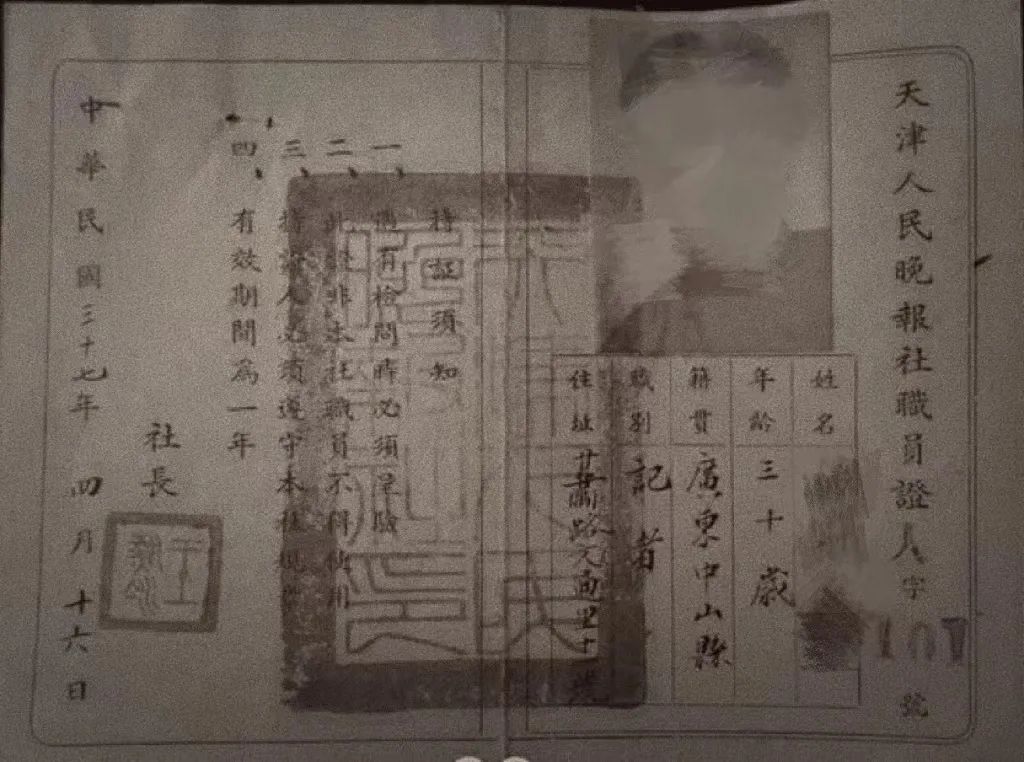 天津人民晚報社職員證人字107號
姓名
年齡 三十歲
籍貫 廣東中山縣
職別 記者
住址 甘肅路天面里十
持証須知
一、遇有檢問時必須呈驗
二、此證非本社職員不得使用
三、持證人必須遵守本社規
四、有效期間爲一年
社長
中華民國三十七年四月十六日